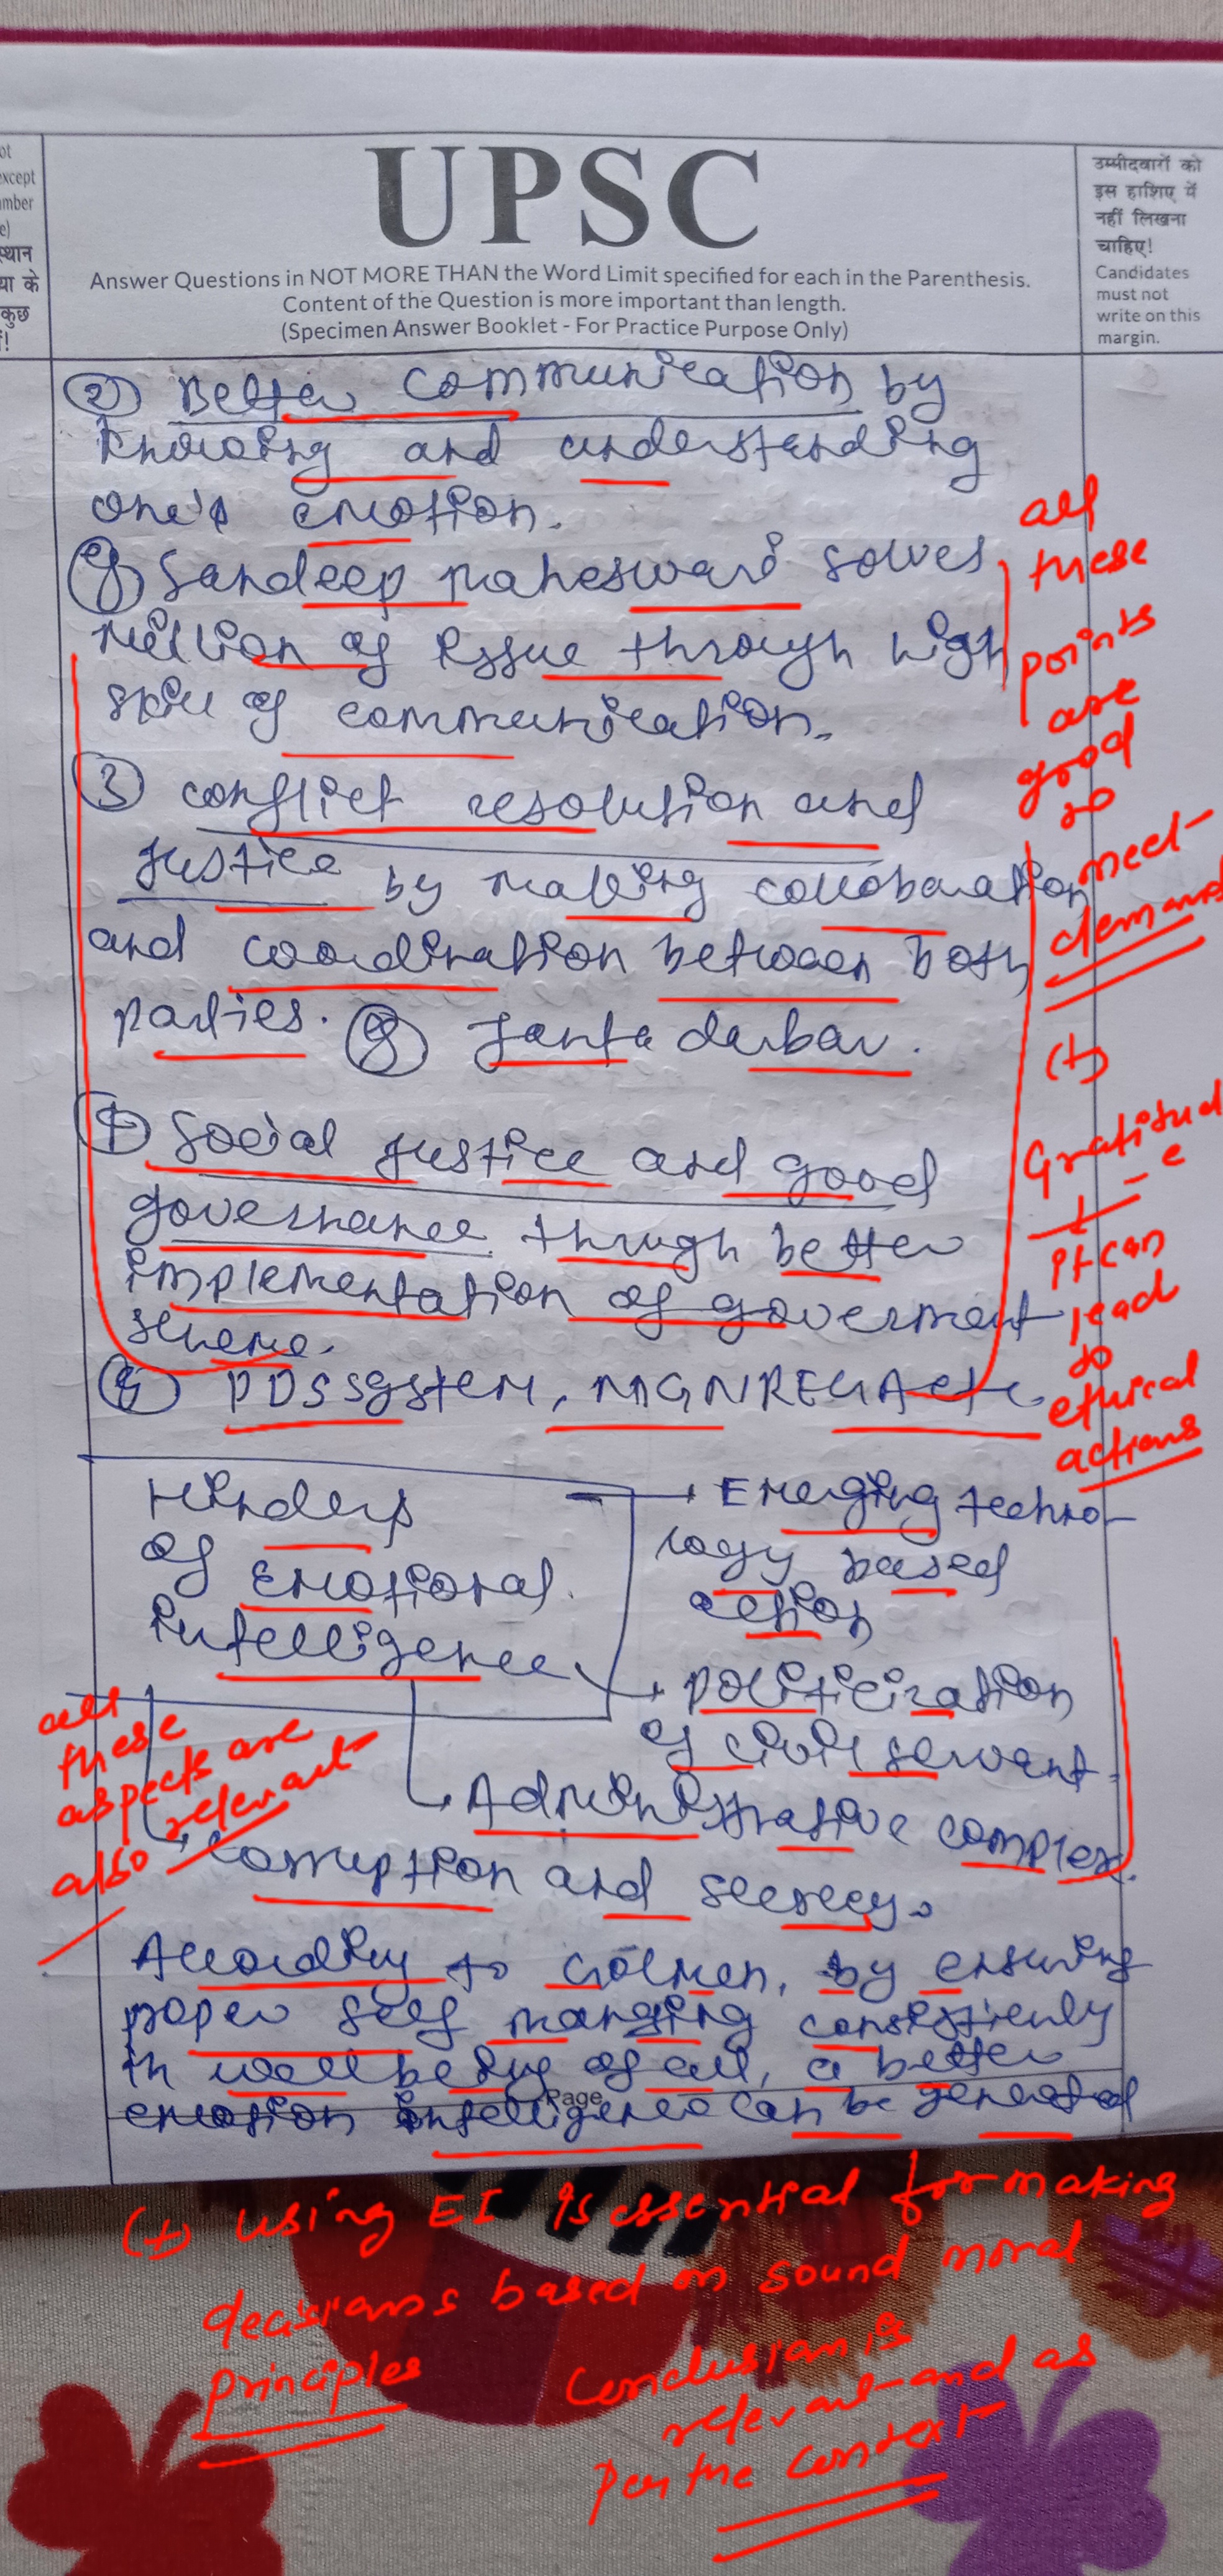 ot
except
mber
e)
स्थान
या के
कुछ
!
UPSC
Answer Questions in NOT MORE THAN the Word Limit specified for each in the Parenthesis.
Content of the Question is more important than length.
(Specimen Answer Booklet - For Practice Purpose Only)
उम्मीदवारों को
इस हाशिए में
नहीं लिखना
चाहिए!
Candidates
must not
write on this
margin.
② Better communication by
knowing and understanding
one's emotion.
eg Sandeep maheswari solves
million of issue through high
skill of communication.
③ conflict resolution and
justice by making collaboration
and coordination between both
parties. eg Janta darbar.
④ Social justice and good
governance through better
implementation of goverment
scheme.
eg PDS system, MGNREGA etc.
all
these
points
are
good
so
meet
demand
(+)
Gratitud
e
it can
lead
to
ethical
actions
Hinders
of Emotional
intelligence
Emerging techno-
logy based
action
politicization
of civil servant.
Administrative complex.
corruption and secrecy.
all
these
aspects are
also relevant
According to Golmen, by ensuring
proper self manging consistienly
in well being of all, a better
emotion intelligence can be generated
Page
(+) using EI is essential for making
decisions based on sound moral
principles
Conclusion is
relevant and as
per the context